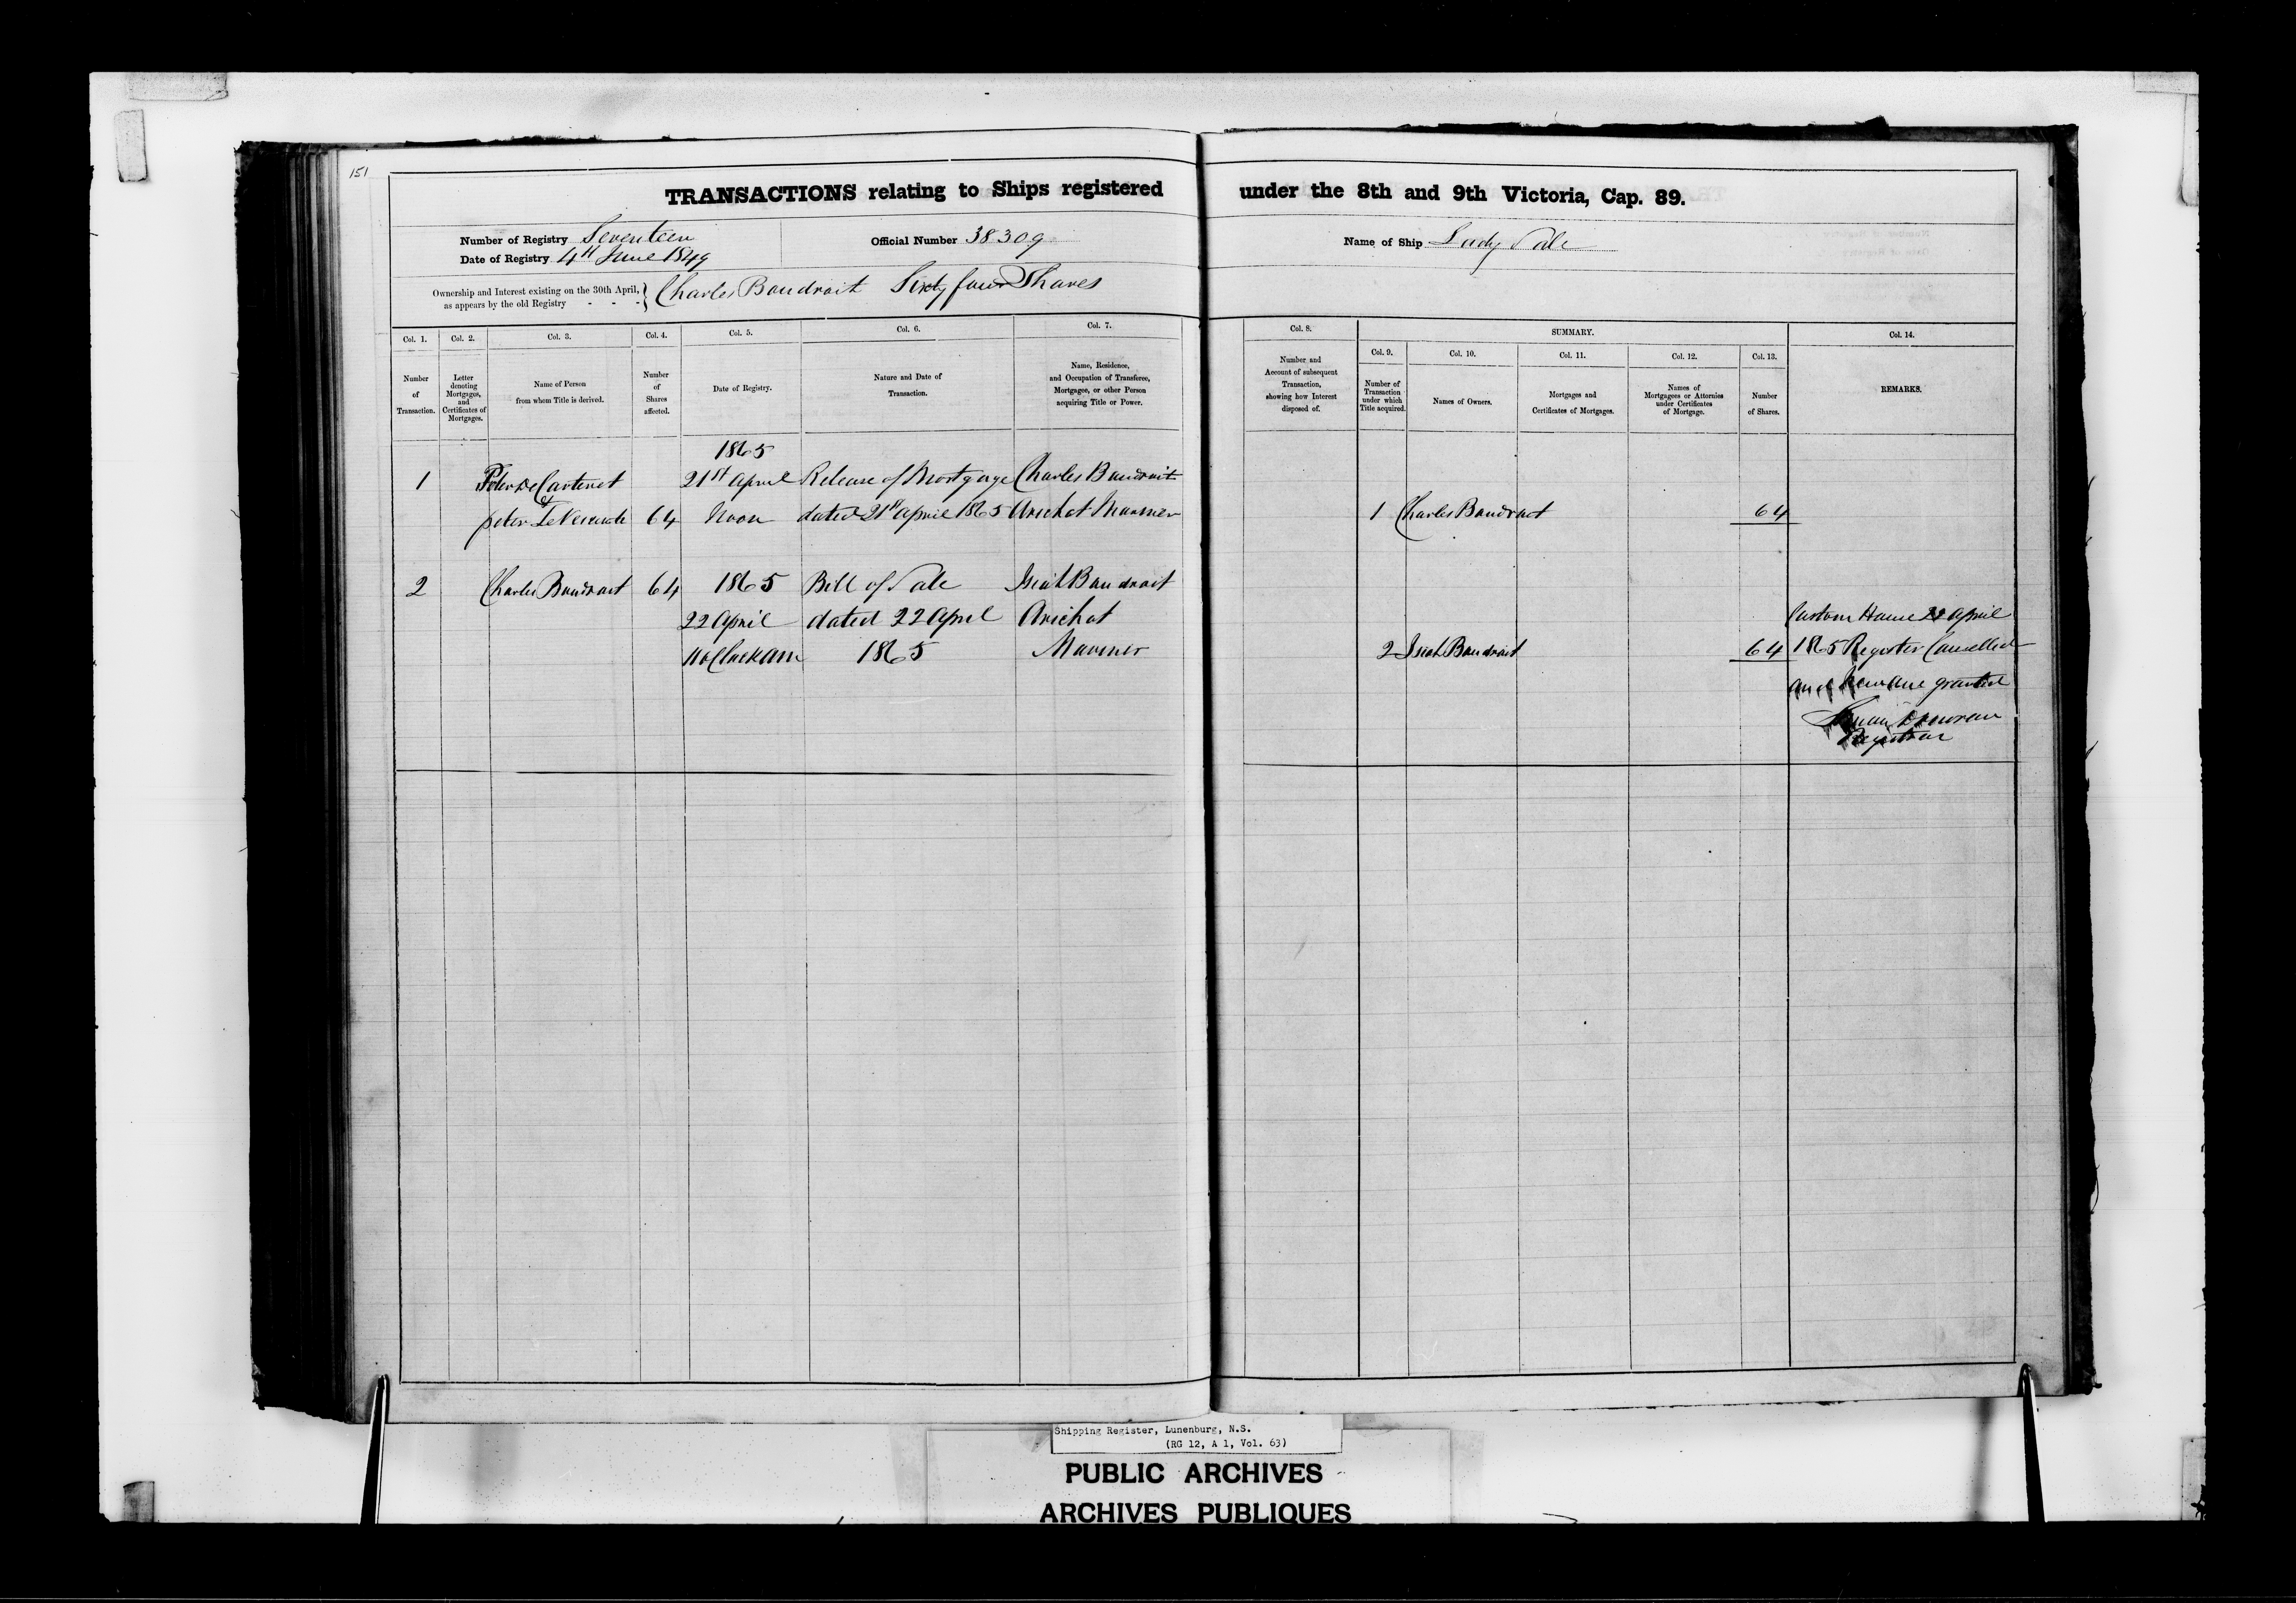 151
TRANSACTIONS relating to Ships registered under the 8th and 9th Victoria, Cap. 89.
Number of Registry Seventeen
Date of Registry 4th June 1849
Official Number 38309
Name of Ship Lady Sale
Ownership and Interest existing on the 30th April,
as appears by the old Registry - - -
Charles Boudroit Sixty four Shares
Col. 1. Number of Transaction.
Col. 2. Letter denoting Mortgages, and Certificates of Mortgages.
Col. 3. Name of Person from whom Title is derived.
Col. 4. Number of Shares affected.
Col. 5. Date of Registry.
Col. 6. Nature and Date of Transaction.
Col. 7. Name, Residence, and Occupation of Transferee, Mortgagee, or other Person acquiring Title or Power.
Col. 8. Number and Account of subsequent Transaction, showing how Interest disposed of.
SUMMARY.
Col. 9. Number of Transaction under which Title acquired.
Col. 10. Names of Owners.
Col. 11. Mortgages and Certificates of Mortgages.
Col. 12. Names of Mortgagees or Attornies under Certificates of Mortgage.
Col. 13. Number of Shares.
Col. 14. REMARKS.
1865
1 Peter De Carteret 21st April Release of Mortgage Charles Boudroit
&
peter 64 Noon dated 21st April 1865 Arichat Mariner 1 Charles Boudroit 64
2 Charles Boudroit 64 1865 Bill of Sale Isiah Boudroit
22 April dated 22 April Arichat Custom House 22 April
11 oClock am 1865 Mariner 2 Isiah Boudroit 64 1865 Register Cancelled
and New one granted
Registrar
Shipping Register, Lunenburg, N.S.
(RG 12, A 1, Vol. 63)
PUBLIC ARCHIVES
ARCHIVES PUBLIQUES